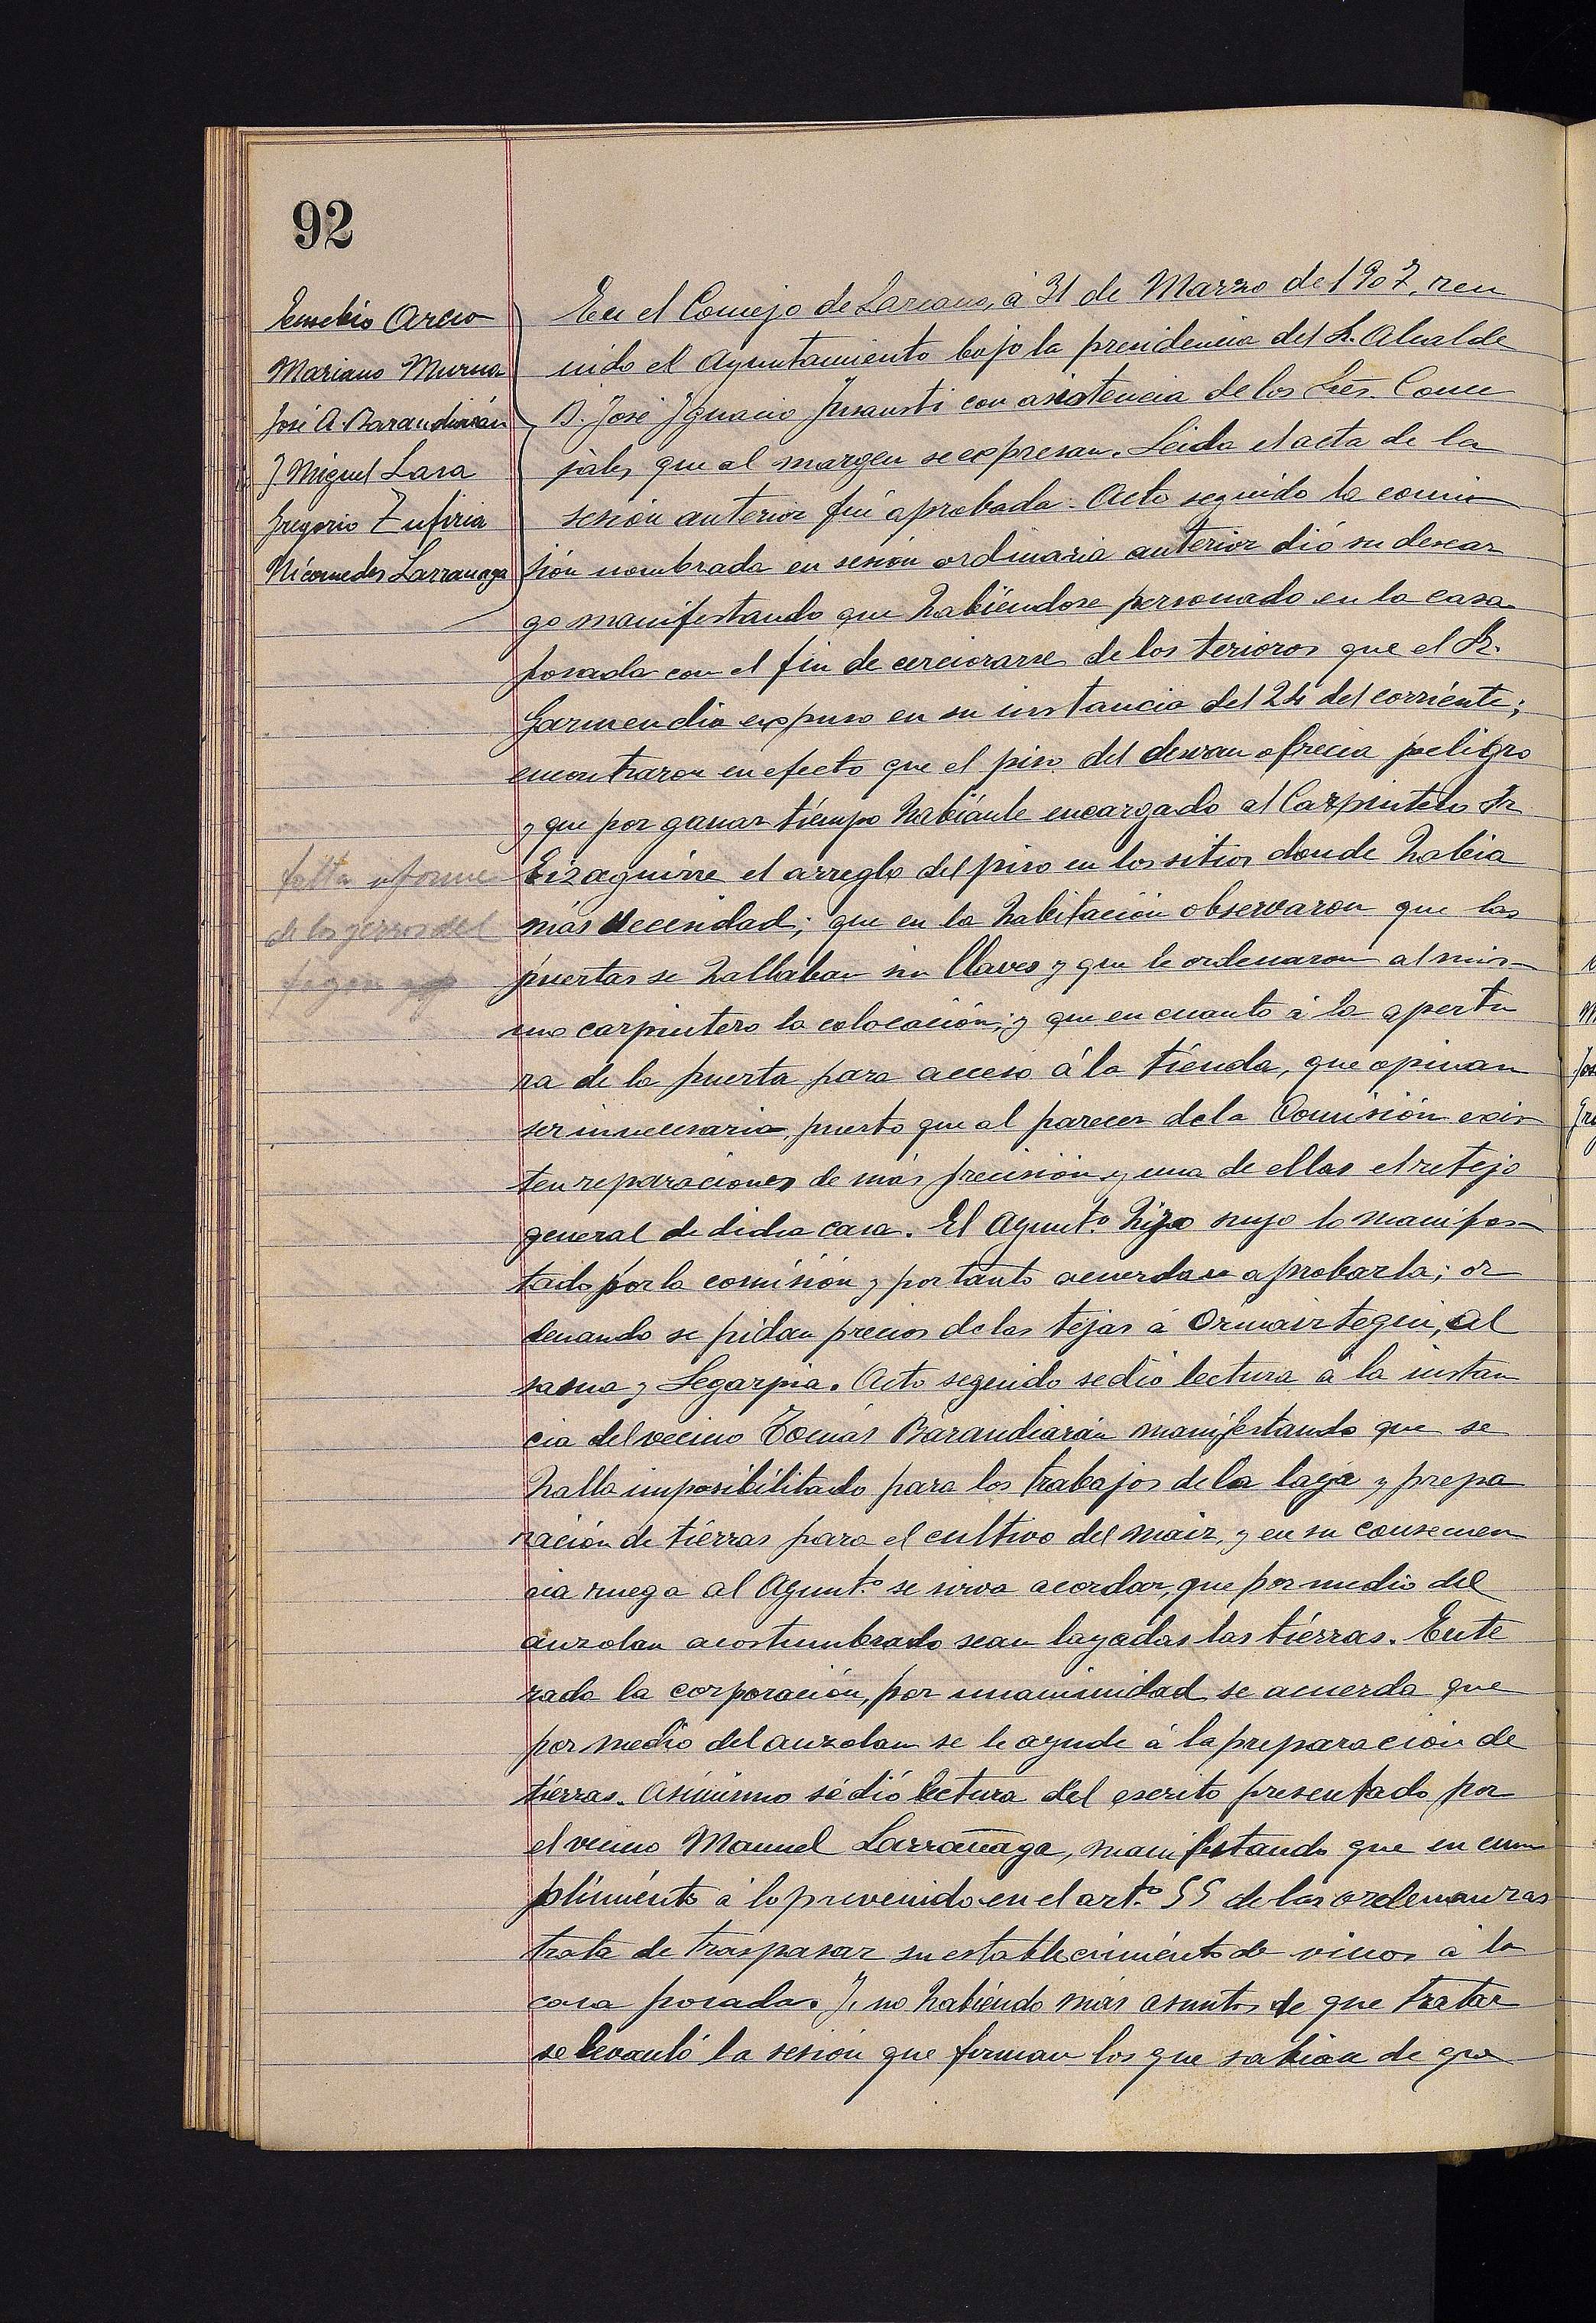 92
Eusebio Arcio
Mariano Murua
José A. Barandiarán
J Miguel Lasa
Gregorio Zufiria
Nicomedes Larrañaga
falta informe
de los yerros del
En el Concejo de Lazcano, á 31 de Marzo de 1907, reu
nido el Ayuntamiento bajo la presidencia del Sr. Alcalde
D. José Ygnacio Jusausti con asistencia de los Sres. Conce
jales que al margen se expresan. Leida el acta de la
sesión anterior fué aprobada. Acto seguido la comi
sión nombrada en sesión ordinaria anterior dió su descar
go manifestando que habiéndose personado en la casa
posada con el fin de cerciorarse de los terioros que el Sr.
Garmendia expuso en su instancia del 24 del corriente;
encontraron en efecto que el piso del desvan ofrecia peligro
y que por ganar tiempo habíanle encargado al Carpintero Sr
Eizaguirre el arreglo del piso en los sitios donde habia
más necesidad; que en la habitación observaron que las
puertas se hallaban sin llaves y que le ordenaron al mis-
mo carpintero la colocación; y que en cuanto á la apertu
ra de la puerta para acceso á la tienda, que opinan
ser innecesaria, puesto que al parecer de la Comisión exis
ten reparaciones de más precisión y una de ellas el retejo
general de dicha casa. El Ayunt.º hizo suyo lo manifes-
tado por la comisión y por tanto acuerdan aprobarla; or
denando se pidan precios de las tejas á Ormaiztegui, Al
sasua y Legarpia. Acto seguido se dió lectura á la instan
cia del vecino Tomás Barandiarán manifestando que se
halla imposibilitado para los trabajos de la laya y prepa
ración de tierras para el cultivo del maiz, y en su consecuen
cia ruega al Ayunt.º se sirva acordar, que por medio del
auzolan acostumbrado sean layadas las tierras. Ente
rada la corporación, por unanimidad se acuerda que
por medio del auzolan se le ayude á la preparación de
tierras. Asimismo se dió lectura del escrito presentado por
el vecino Manuel Larrañaga, manifestando que en cum
plimiento á lo prevenido en el art.º 55 de las ordenanzas
trata de traspasar su establecimiento de vinos á la
casa posada. Y, no habiendo más asuntos de que tratar
se levantó la sesión que firman los que sabian de que